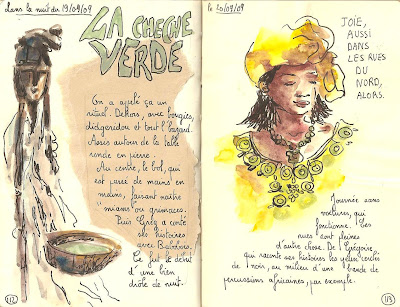 Dans la nuit du 19/09/09
LA CHECHE
VERDE
On a appelé ça un
rituel. Dehors, avec bougies,
didgeridou et tout l'bazard.
Assis autour de la table
ronde en pierre.
Au centre, le bol, qui
est passé de mains en
mains, faisant naître
"miams" ou grimaces.
Puis Greg a conté
ses histoires
avec
Ce fut le début
d'une bien
drôle de nuit.
112
le 20/09/09
JOIE,
AUSSI
DANS
LES RUES
DU
NORD,
ALORS.
Journée sans
voitures, qui
fonctionne. Les
rues sont pleines
d'autre chose. De Grégoire,
qui raconte ses histoires les yeux
de noir, au milieu d'une bande de
percussions africaines, par exemple.
113